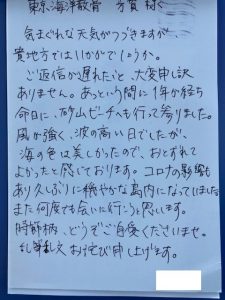 東京海洋散骨 方貴 様
気まぐれな天気がつづきますが、
貴地方ではいかがでしょうか。
ご返信が遅れたこと、大変申し訳
ありません。あっという間に1年が経ち
命日に、砂山ビーチへも行って参りました。
風が強く、波の高い日でしたが、
海の色は美しかったので、おとずれて
よかったと感じております。コロナの影響も
あり久しぶりに穏やかな島内になってしました
また何度でも会いに行こうと思います。
時節柄、どうぞご自愛くださいませ。
乱筆乱文お詫び申し上げます。